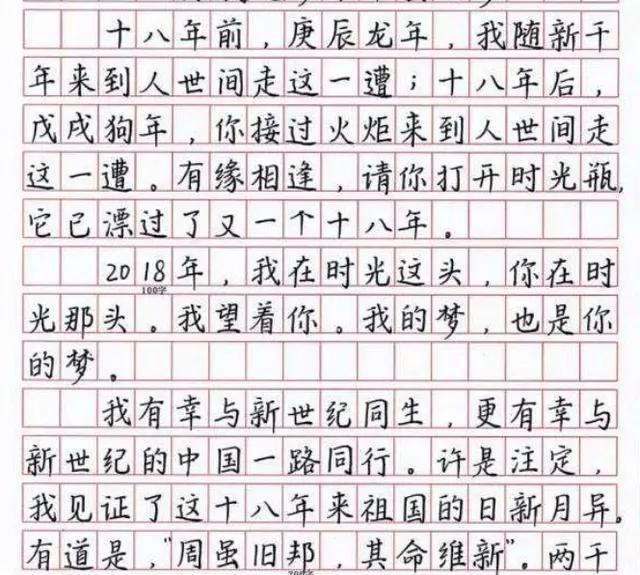 十八年前，庚辰龙年，我随新千
年来到人世间走这一遭；十八年后，
戊戌狗年，你接过火炬来到人世间走
这一遭。有缘相逢，请你打开时光瓶，
它已漂过了又一个十八年。
2018年，我在时光这头，你在时
100字
光那头。我望着你。我的梦，也是你
的梦。
我有幸与新世纪同生，更有幸与
新世纪的中国一路同行。许是注定，
我见证了这十八年来祖国的日新月异。
有道是，“周虽旧邦，其命维新”。两千